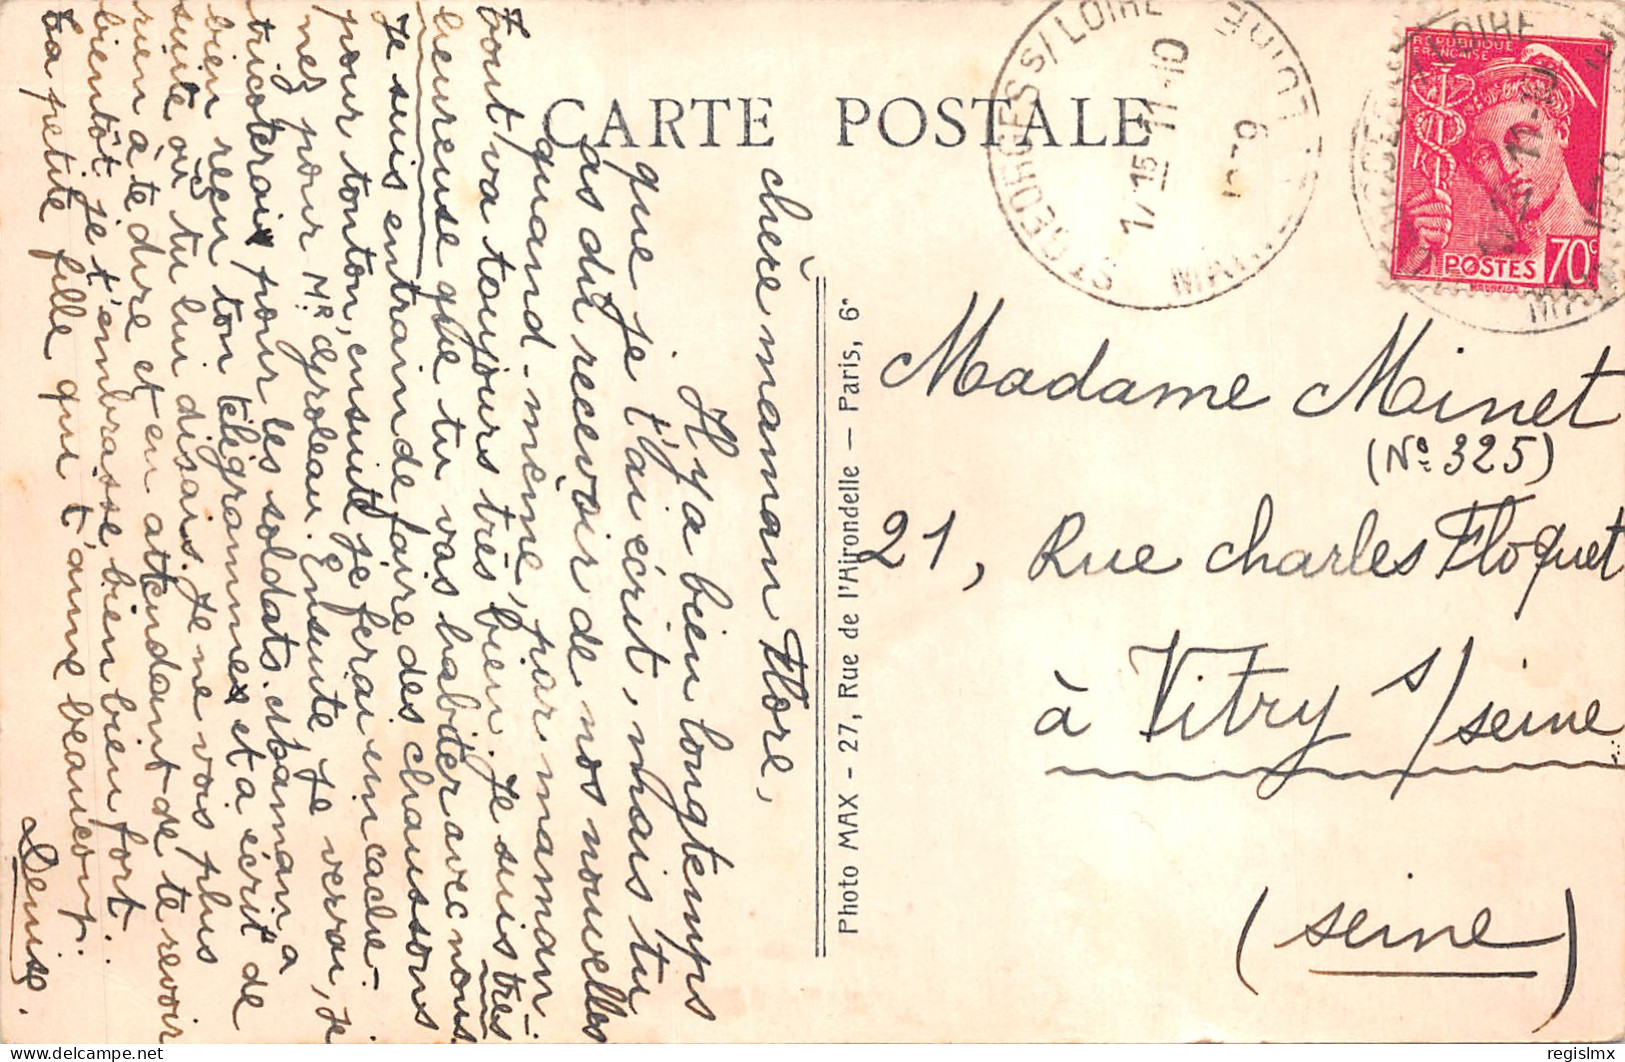 CARTE POSTALE
chère maman Flore,
Il y a bien longtemps
que je t'ai écrit, mais tu
as dû recevoir de nos nouvelles
quand-même, par maman.
tout va toujours très bien. Je suis très
heureuse que tu vas habiter avec nous.
Je suis entrain de faire des chaussons
pour tonton, ensuite je ferai un cache-
nez pour Mr Groleau. Ensuite je verrai, je
tricoterai pour les soldats. maman a
bien reçu ton télégramme et a écrit de
suite où tu lui disais. Je ne vois plus
rien à te dire et en attendant de te revoir
bientôt je t'embrasse bien bien fort.
ta petite fille qui t'aime beaucoup.
Denise.
Photo MAX - 27, Rue de l'Hirondelle - Paris, 6e
ST GEORGES S/ LOIRE
17 15 11-10
REPUBLIQUE
FRANÇAISE
POSTES 70c
Madame Minet
(No. 325)
21, Rue charles Floquet
à Vitry s/seine
(seine)
regislmx